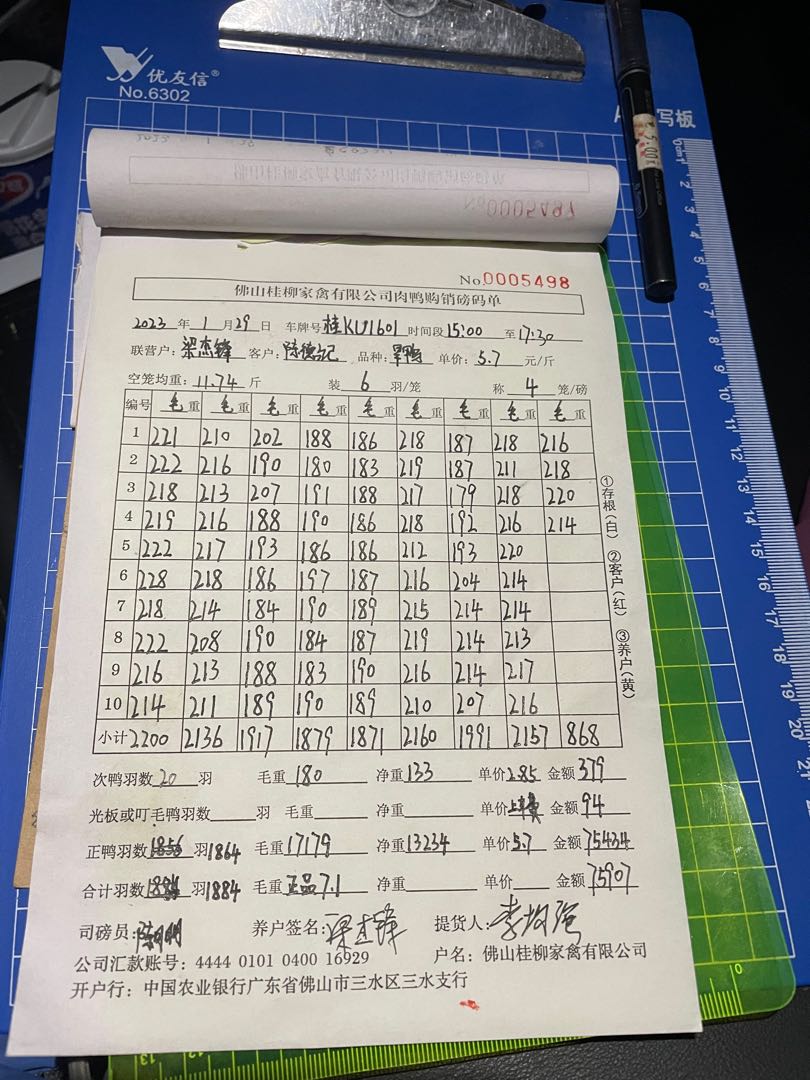 优友信®
No.6302
写板
No.0005497
5.00
No.0005498
佛山桂柳家禽有限公司肉鸭购销磅码单
2023 年 1 月 29 日 车牌号 桂KU1601 时间段 15:00 至 17:30
联营户: 梁杰锋 客户: 陈德记 品种: 单价: 5.7 元/斤
空笼均重: 11.74 斤 装 6 羽/笼 称 4 笼/磅
编号 毛重 毛重 毛重 毛重 毛重 毛重 毛重 毛重 毛重
1 221 210 202 188 186 218 187 218 216
2 222 216 190 180 183 219 187 211 218
3 218 213 207 191 188 217 179 218 220
4 219 216 188 190 186 218 192 216 214
5 222 217 193 186 186 212 193 220
6 228 218 186 197 187 216 204 214
7 218 214 184 190 189 215 214 214
8 222 208 190 184 187 219 214 213
9 216 213 188 183 190 216 214 217
10 214 211 189 190 189 210 207 216
小计 2200 2136 1917 1879 1871 2160 1991 2157 868
次鸭羽数 20 羽 毛重 180 净重 133 单价 2.85 金额 379
光板或叮毛鸭羽数 羽 毛重 净重 单价 上车费 金额 94
正鸭羽数 1856 羽 1864 毛重 17179 净重 13234 单价 5.7 金额 75434
合计羽数 羽 1884 毛重 正品7.1 净重 单价 金额 75907
司磅员: 养户签名: 梁杰锋 提货人:
公司汇款账号: 4444 0101 0400 16929 户名: 佛山桂柳家禽有限公司
开户行: 中国农业银行广东省佛山市三水区三水支行
①存根(白) ②客户(红) ③养户(黄)